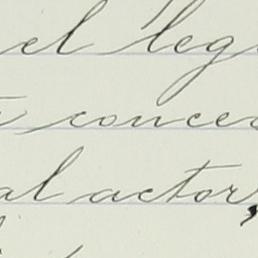 el leg
concer
al actor,